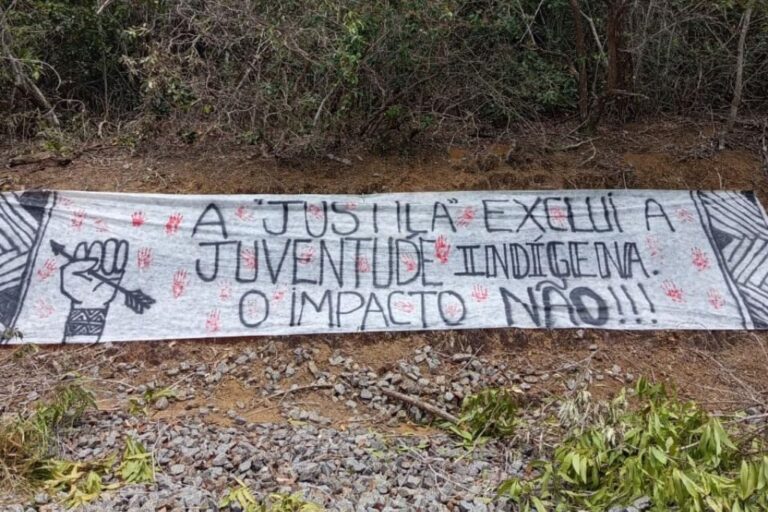 A "JUSTIÇA" EXCLUÍ A
JUVENTUDE INDÍGENA.
O IMPACTO NÃO!!!